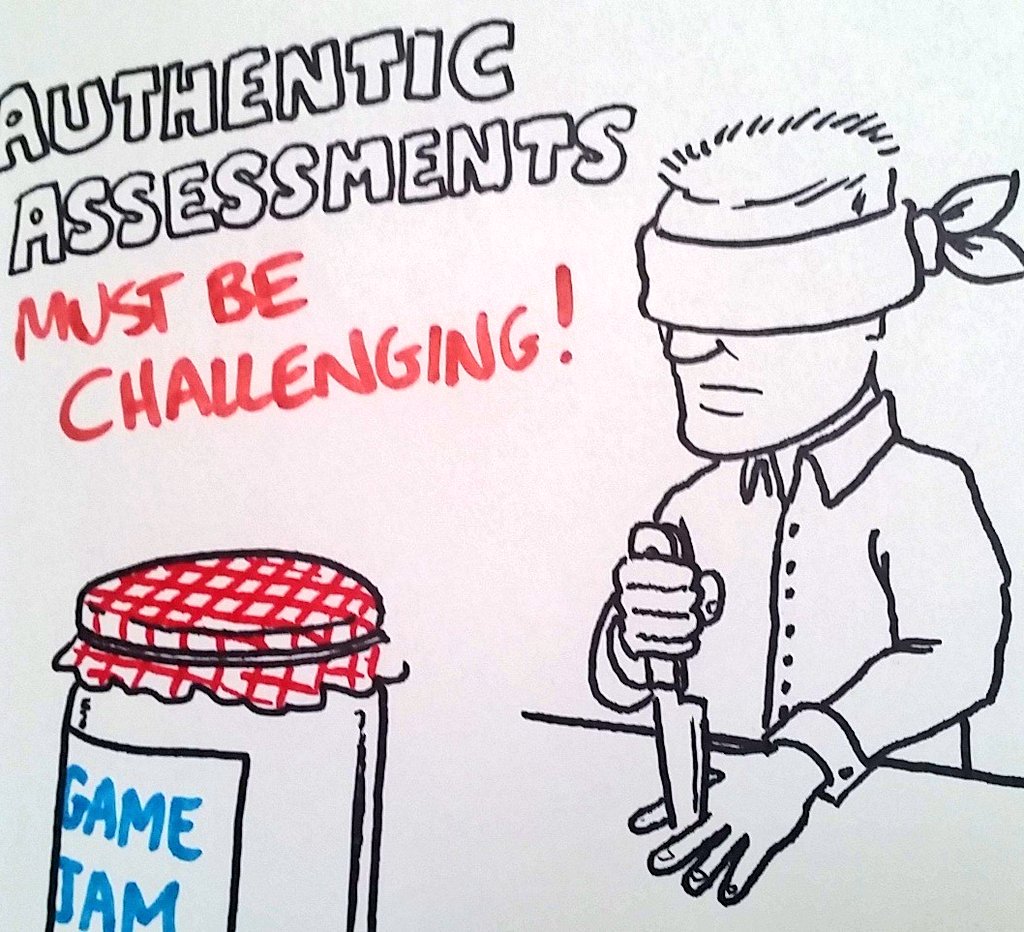 AUTHENTIC
ASSESSMENTS
MUST BE
CHALLENGING!
GAME
JAM